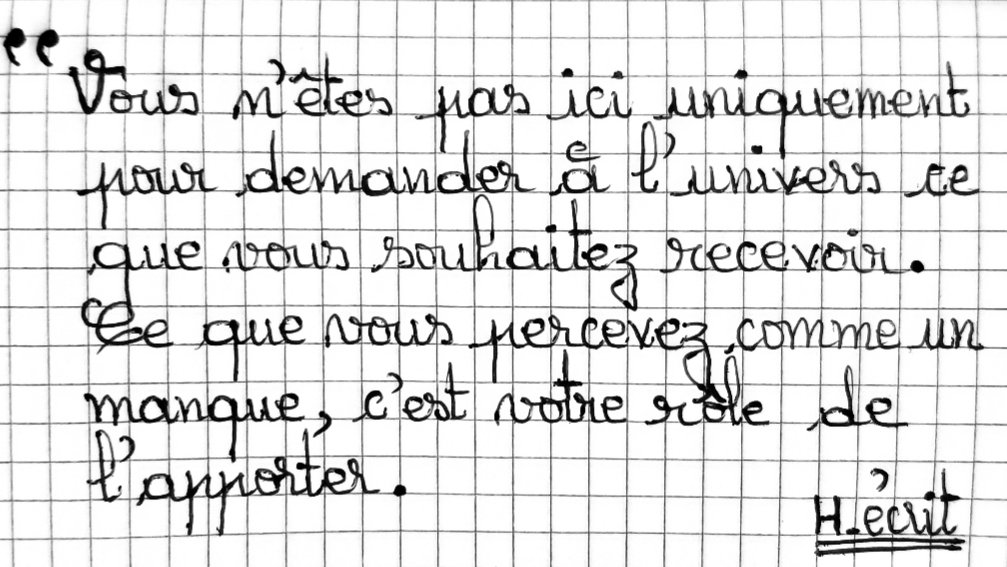 “Vous n'êtes pas ici uniquement
pour demander à l'univers ce
que vous souhaitez recevoir.
Ce que vous percevez comme un
manque, c'est votre rôle de
l'apporter.
H-écrit